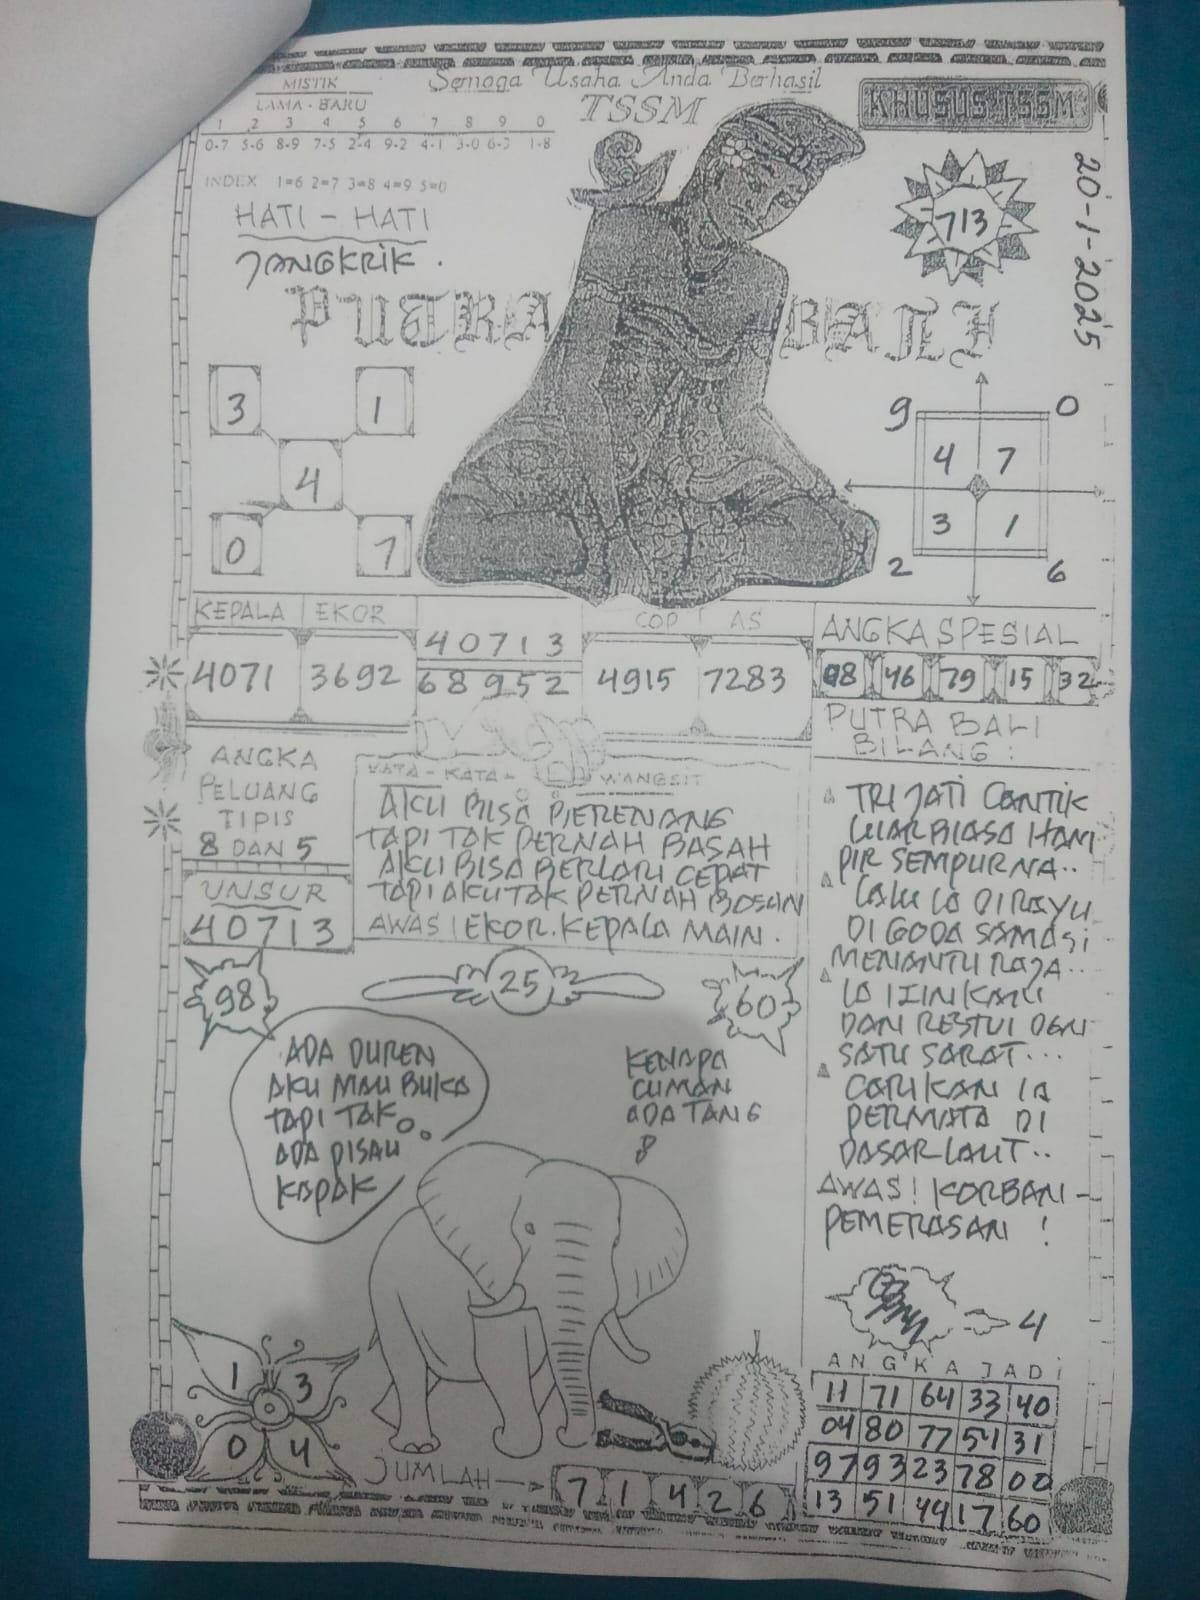 MISTIK
LAMA - BARU
1 2 3 4 5 6 7 8 9 0
0-7 5-6 8-9 7-5 2-4 9-2 4-1 3-0 6-3 1-8
INDEX 1=6 2=7 3=8 4=9 5=0
Semoga Usaha Anda Berhasil
TSSM
KHUSUS TSSM
20-1-2025
713
HATI - HATI
JANGKRIK.
PUTRA BALI
3 1
4
0 7
9 0
4 7
3 1
2 6
KEPALA EKOR
4071 3692
40713
68952
COP AS
4915 7283
ANGKA SPESIAL
98 46 79 15 32
ANGKA
PELUANG
TIPIS
8 DAN 5
UNSUR
40713
KATA - KATA - WANGSIT
AKU BISA BERENANG
TAPI TAK PERNAH BASAH
AKU BISA BERLARI CEPAT
TAPI AKU TAK PERNAH BOSAN
AWAS! EKOR. KEPALA MAIN.
PUTRA BALI
BILANG:
TRI JATI CANTIK
LUAR BIASA HAM
PIR SEMPURNA..
LALU IA DI RAYU
DI GODA SAMASI
MENANTU RAJA..
IA IJINKAN
DAN RESTUI DGN
SATU SARAT...
CARIKAN IA
PERMATA DI
DASAR LAUT..
AWAS! KORBAN-
PEMERASAN!
98
25
60
ADA DUREN
AKU MAU BUKA
TAPI TAK
ADA PISAU
KAPAK
KENAPA
CUMAN
ADA TANG
4
1 3
0 4
JUMLAH
7 1 4 2 6
ANGKA JADI
11 71 64 33 40
04 80 77 54 31
97 93 23 78 00
13 51 49 17 60